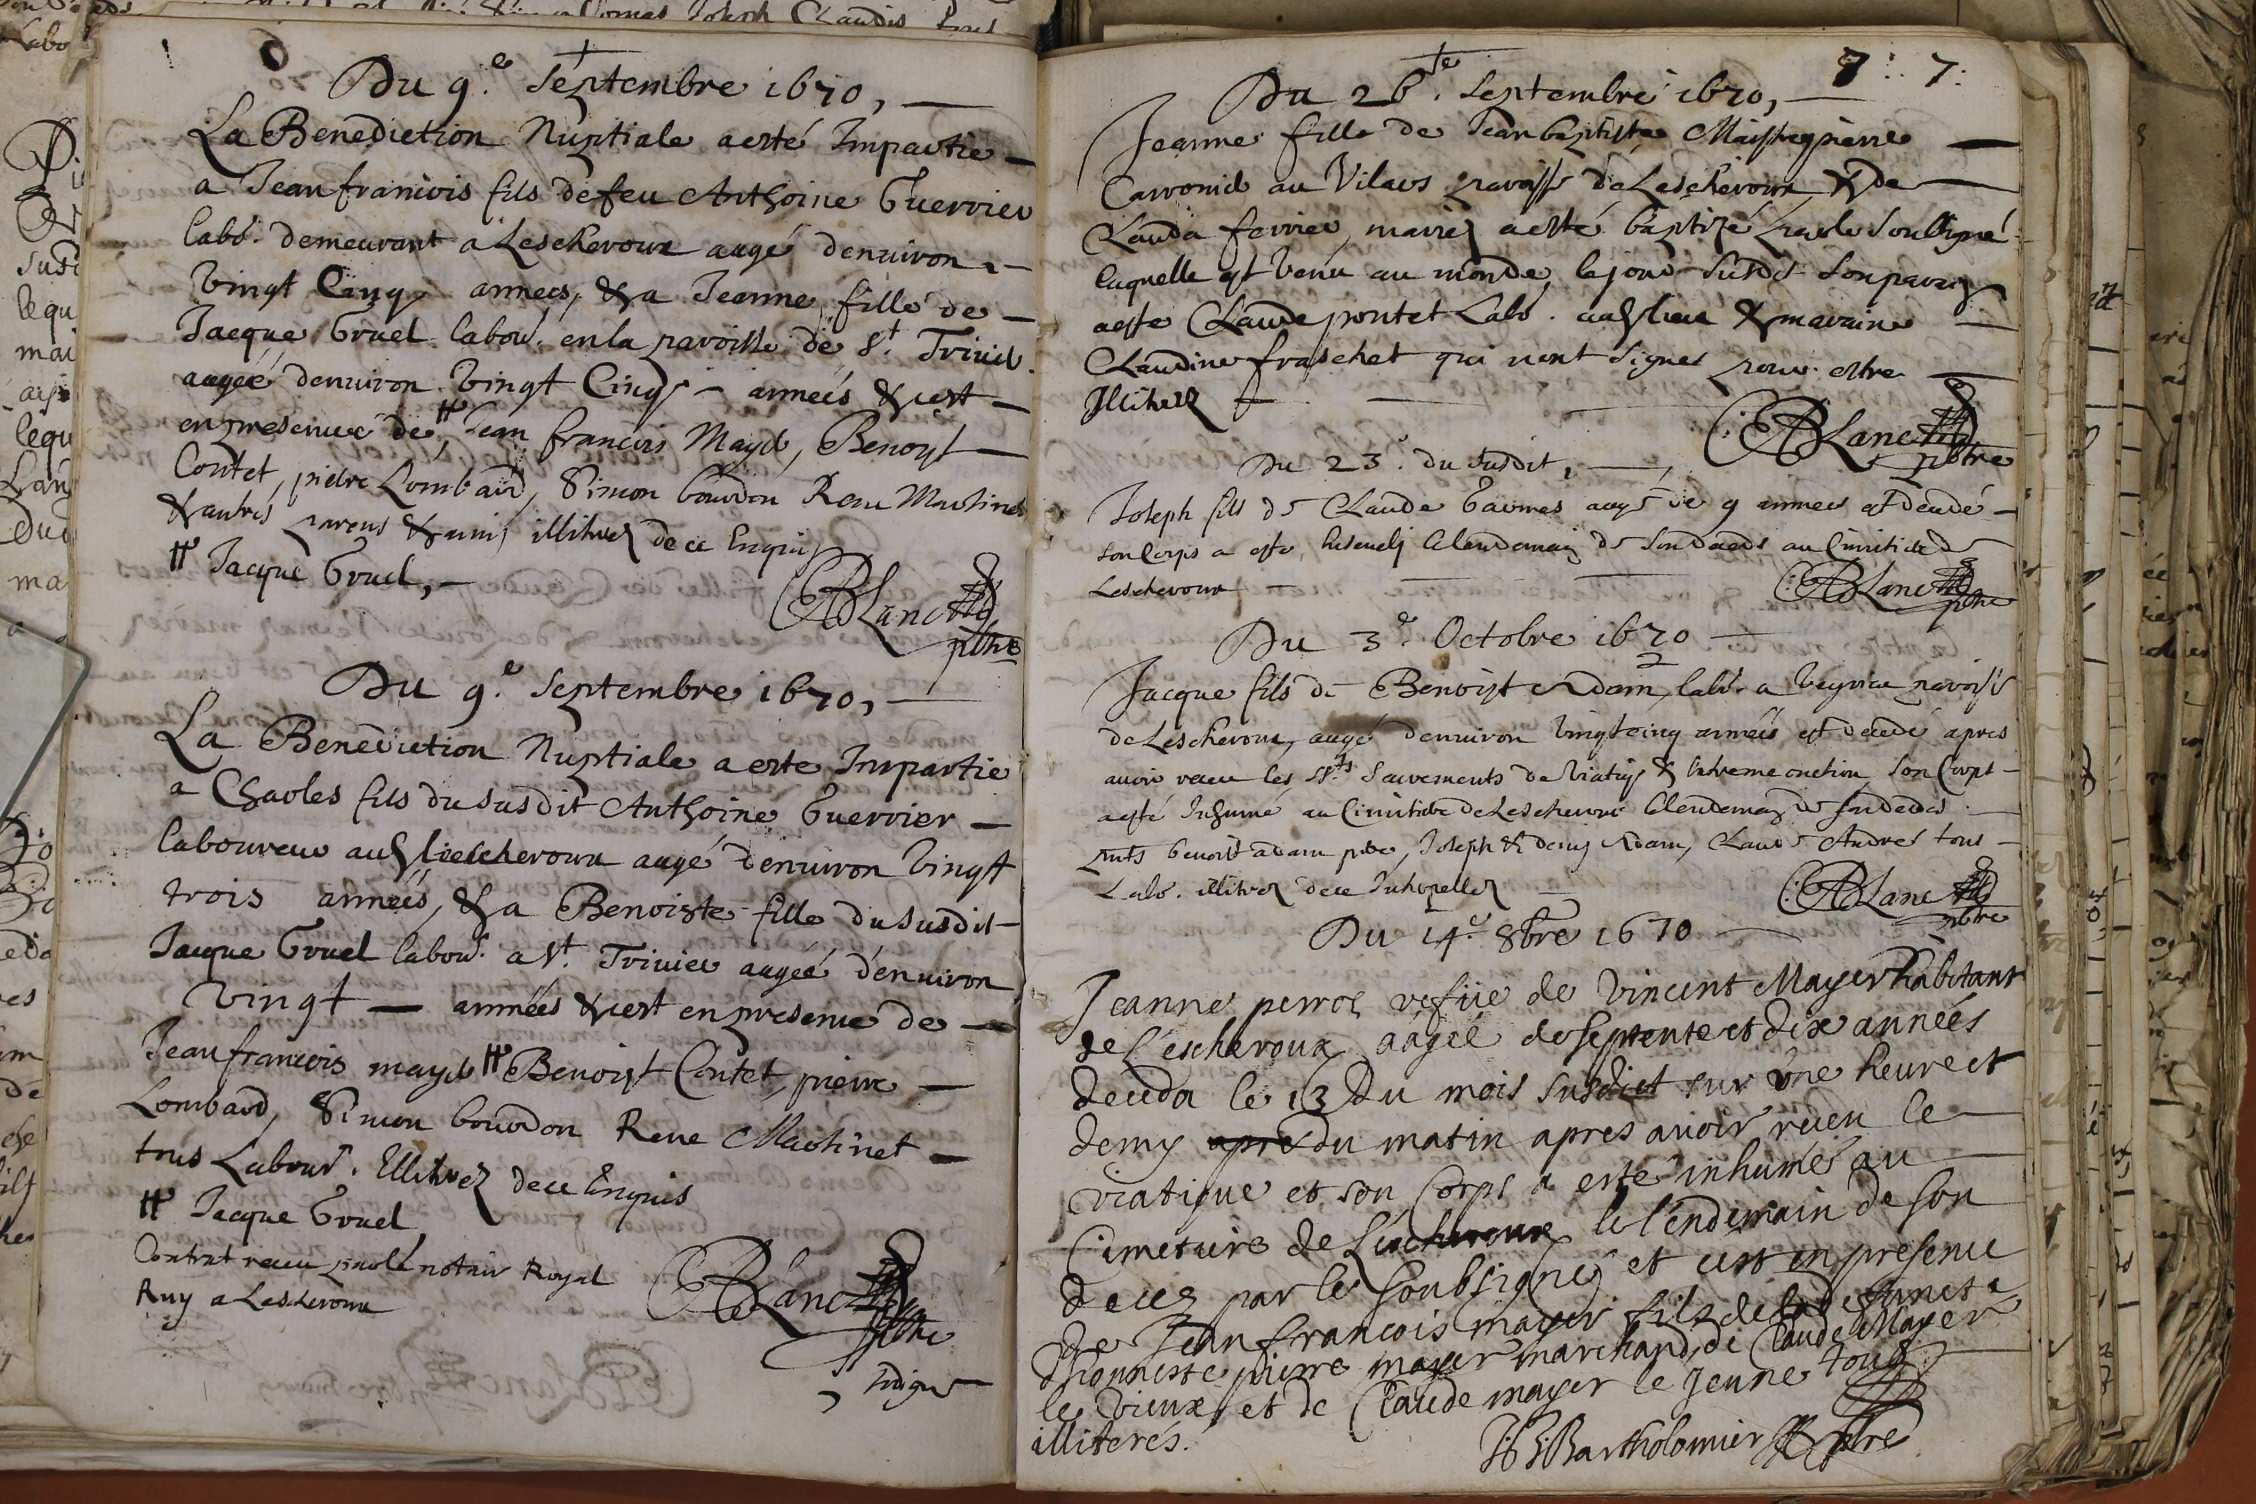 6
Du 9.e Septembre 1670,
La Benediction Nuptiale a esté Impartie
a Jean francois fils de feu Anthoine Guerrier
labo.r demeurant a Lescheroux aagé denuiron
Vingt Cinq annees, & a Jeanne fille de
Jacque Gruel labour. en la paroisse de St. Triuier
aagéé denuiron Vingt Cinq annéés & cest
en presence de, Jean francois Mayer, Benoyst
Contet, pierre Lombard, Simon bourdon Rene Martinet
& autres parens & amis illiterez de ce Enquis
Jacque Gruel,
Blanc
pbre
Du 9.e Septembre 1670,
La Benediction Nuptiale a este Impartie
a Charles fils du susdit Anthoine Guerrier
laboureur aud lescheroux aagé denuiron Vingt
trois annéés, & a Benoiste fille du susdit
Jacque Gruel labour. a St. Triuier aagéé denuiron
Vingt années & cest en presence de
Jean francois mayer Benoist Contet, pierre
Lombard, Simon bourdon Rene Martinet
tous Labour. Illiterez de ce Enquis
Jacque Gruel
Contrat receu par le notaire Royal
Ruy a Lescheroux
Blanc
pbre
Indigne
7: 7:
Du 26.te Septembre 1670,
Jeanne fille de Jean baptiste Maistrepierre
au Vilars paroisse de Lescheroux & de
Clauda ferrier, mariez a esté baptizé par le soussigné
laquelle est Venu au monde le jour susdit son parain
a este Claude pontet Labo. aud lieu & maraine
Claudine fraschet qui nont signes pour estre
Illiterez
Blanc
pbre
Du 23.e du susdit,
Joseph fils de Claude aagé de 9 annees est decedé
son Corps a este Enseueli le lendemain de son deceds au Cimitiere de
Lescheroux
Blanc
pbre
Du 3.e Octobre 1670
Jacque fils de Benoist Adam, labo. a paroisse
de Lescheroux, aagé denuiron Vingt cinq annéés est decedé apres
auoir receu les Sts. Sacrements de Viatiq & Extreme onction son Corps
a esté Inhumé au Cimitiere de Lescheroux le lendemain de son deceds
pnts benoist adam pere, Joseph & denis Adam, Claude Andres tous
Labo. illiterez de ce Interpellez
Blanc
pbre
Du 14.e 8bre 1670
Jeanne perrot vefüe de Vincent Mayer habitant
de Lescheroux aagéé de septente et dix annéés
deceda le 13 Du mois susdict sur vne heure et
demy apres du matin apres auoir receu le
viatique et son Corps a esté inhumé au
Cimetiere de Lescheroux le lendemain de son
decez par le soubsigné et cest en presence
de Jean francois mayer fils de lad defuncte
dhonneste pierre mayer marchand, de Claude Mayer
le vieux, et de Claude mayer le jeune tous
illiterés.
Bartholomier pbre